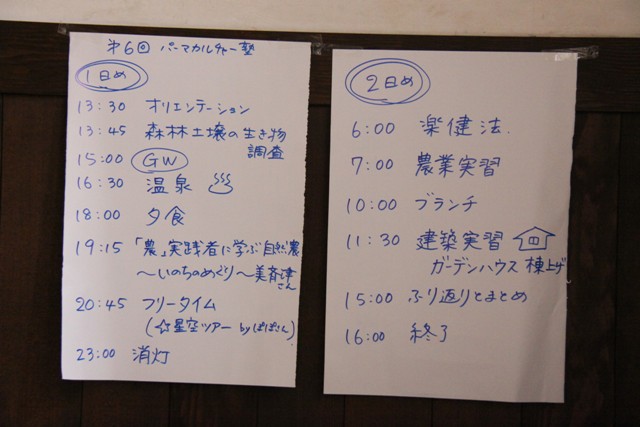 第6回 パーマカルチャー塾
1日め
13:30 オリエンテーション
13:45 森林土壌の生き物
調査
15:00 GW
16:30 温泉 ♨
18:00 夕食
19:15 「農」実践者に学ぶ自然農
〜いのちのめぐり〜美斉津さん
20:45 フリータイム
(☆星空ツアー by ぱぱさん)
23:00 消灯
2日め
6:00 楽健法
7:00 農業実習
10:00 ブランチ
11:30 建築実習
ガーデンハウス 棟上げ
15:00 ふり返りとまとめ
16:00 終了